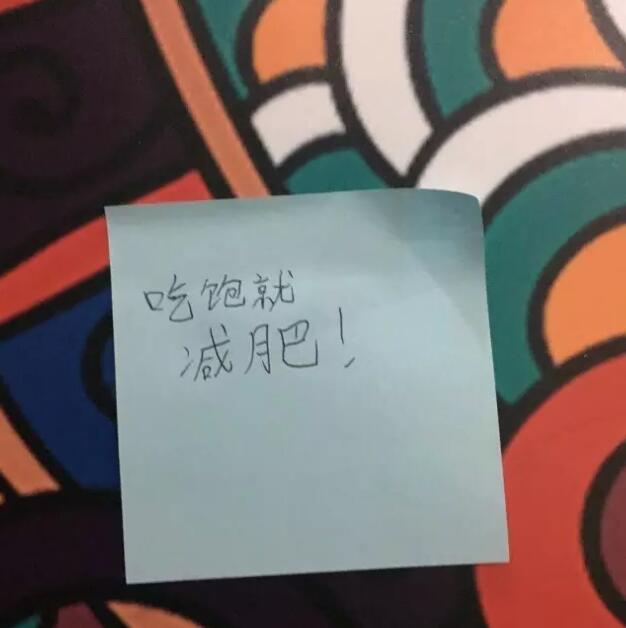 吃饱就
减肥!